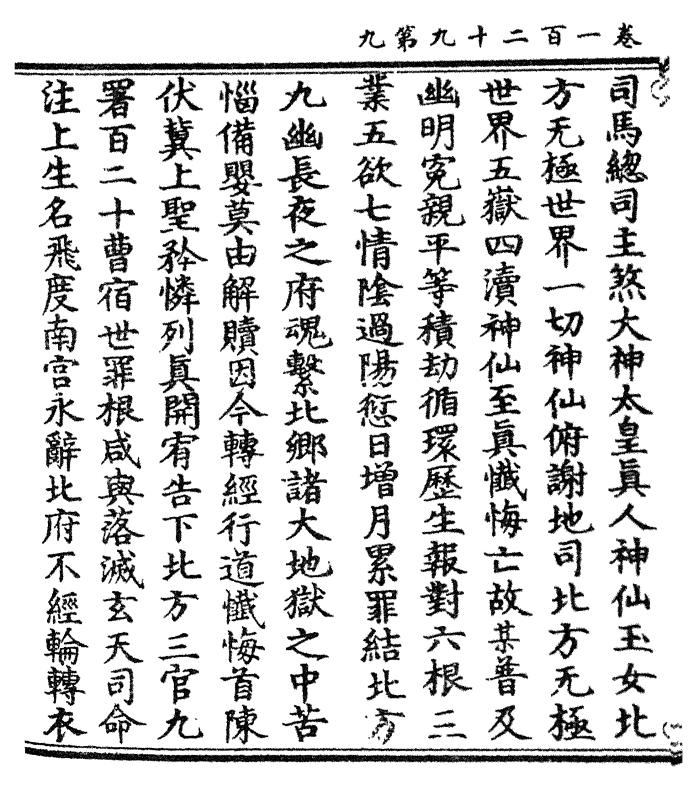 卷一百二十九第九
司馬總司主煞大神太皇眞人神仙玉女北
方无極世界一切神仙俯謝地司北方无極
世界五嶽四瀆神仙至眞懺悔亡故某普及
幽明寃親平等積劫循環歷生報對六根三
業五欲七情陰過陽愆日增月累罪結北方
九幽長夜之府魂繫北鄉諸大地獄之中苦
惱備嬰莫由解贖因今轉經行道懺悔首陳
伏冀上聖矜憐列眞開宥告下北方三官九
署百二十曹宿世罪根咸與落滅玄天司命
注上生名飛度南宮永辭北府不經輪轉衣